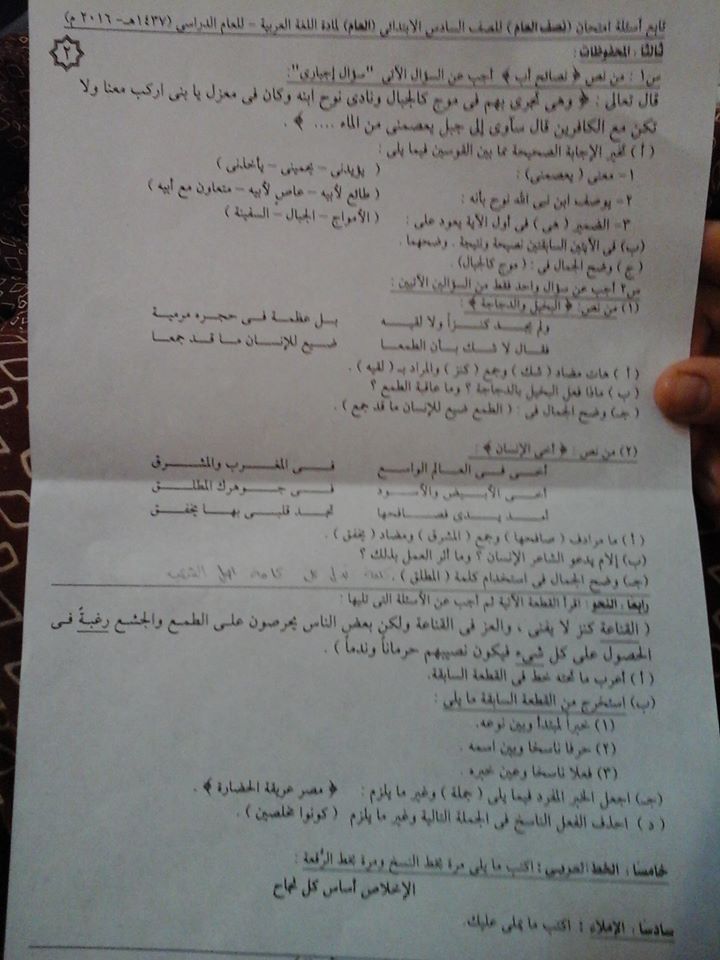 تابع أسئلة امتحان ( نصف العام ) للصف السادس الابتدائى ( العام ) لمادة اللغة العربية – للعام الدراسى (١٤٣٧هـ - ٢٠١٦ م )
٢
ثالثا : المحفوظات :
س١ : من نص « نصائح أب » أجب عن السؤال الآتى "سؤال إجبارى":
قال تعالى : ﴿ وهى تجرى بهم فى موج كالجبال ونادى نوح ابنه وكان فى معزل يا بنى اركب معنا ولا
تكن مع الكافرين قال سآوى إلى جبل يعصمنى من الماء .... ﴾ .
( أ ) تخير الإجابة الصحيحة مما بين القوسين فيما يلى :
١- معنى ( يعصمنى) : ( يؤيدنى – يحمينى – يأخذنى )
٢- يوصف ابن نبى الله نوح بأنه : ( طائع لأبيه – عاصٍ لأبيه – متعاون مع أبيه )
٣- الضمير ( هى ) فى أول الآية يعود على : ( الأمواج – الجبال – السفينة )
(ب) فى الآيتين السابقتين نصيحة ونتيجة . وضحهما .
( ج ) وضح الجمال فى : ( موج كالجبال) .
س٢ أجب عن سؤال واحد فقط من السؤالين الآتيين :
(١) من نص: « البخيل والدجاجة » :
ولم يجد كنزاً ولا لقيه بل عظمة فى حجره مرمية
فقال لا شك بأن الطمعا ضيع للإنسان ما قد جمعا
( أ ) هات مضاد ( شك ) وجمع ( كنز ) والمراد بـ ( لقيه ) .
( ب ) ماذا فعل البخيل بالدجاجة ؟ وما عاقبة الطمع ؟
(جـ) وضح الجمال فى : ( الطمع ضيع للإنسان ما قد جمع ) .
(٢) من نص : « أخى الإنسان » :
أخى فى العالم الواسع فى المغرب والمشرق
أخى الأبيض والأسود فى جوهرك المطلق
أمد يدى فصافحها تجد قلبى بها يخفق
( أ ) ما مرادف ( صافحها ) وجمع ( المشرق ) ومضاد ( يخفق ) .
(ب) إلام يدعو الشاعر الإنسان ؟ وما أثر العمل بذلك ؟
(جـ) وضح الجمال فى استخدام كلمة ( المطلق ) .
رابعا : النحو : اقرأ القطعة الآتية ثم أجب عن الأسئلة التى تليها :
( القناعة كنز لا يفنى ، والعز فى القناعة ولكن بعض الناس يحرصون على الطمع والجشع رغبةً فى
الحصول على كل شىء فيكون نصيبهم حرماناً وندماً ) .
( أ ) أعرب ما تحته خط فى القطعة السابقة.
(ب) إستخرج من القطعة السابقة ما يلى :
(١) خبراً لمبتدأ وبين نوعه.
(٢) حرفا ناسخا وبين اسمه .
(٣) فعلا ناسخا وعين خبره .
(جـ) اجعل الخبر المفرد فيما يلى ( جملة ) وغير ما يلزم : « مصر عريقة الحضارة » .
( د ) احذف الفعل الناسخ فى الجملة التالية وغير ما يلزم ( كونوا مخلصين ) .
خامسا : الخط العربى : اكتب ما يلى مرة بخط النسخ ومرة بخط الرُّقعة :
الإخلاص أساس كل نجاح
سادسا : الإملاء : اكتب ما يملى عليك.